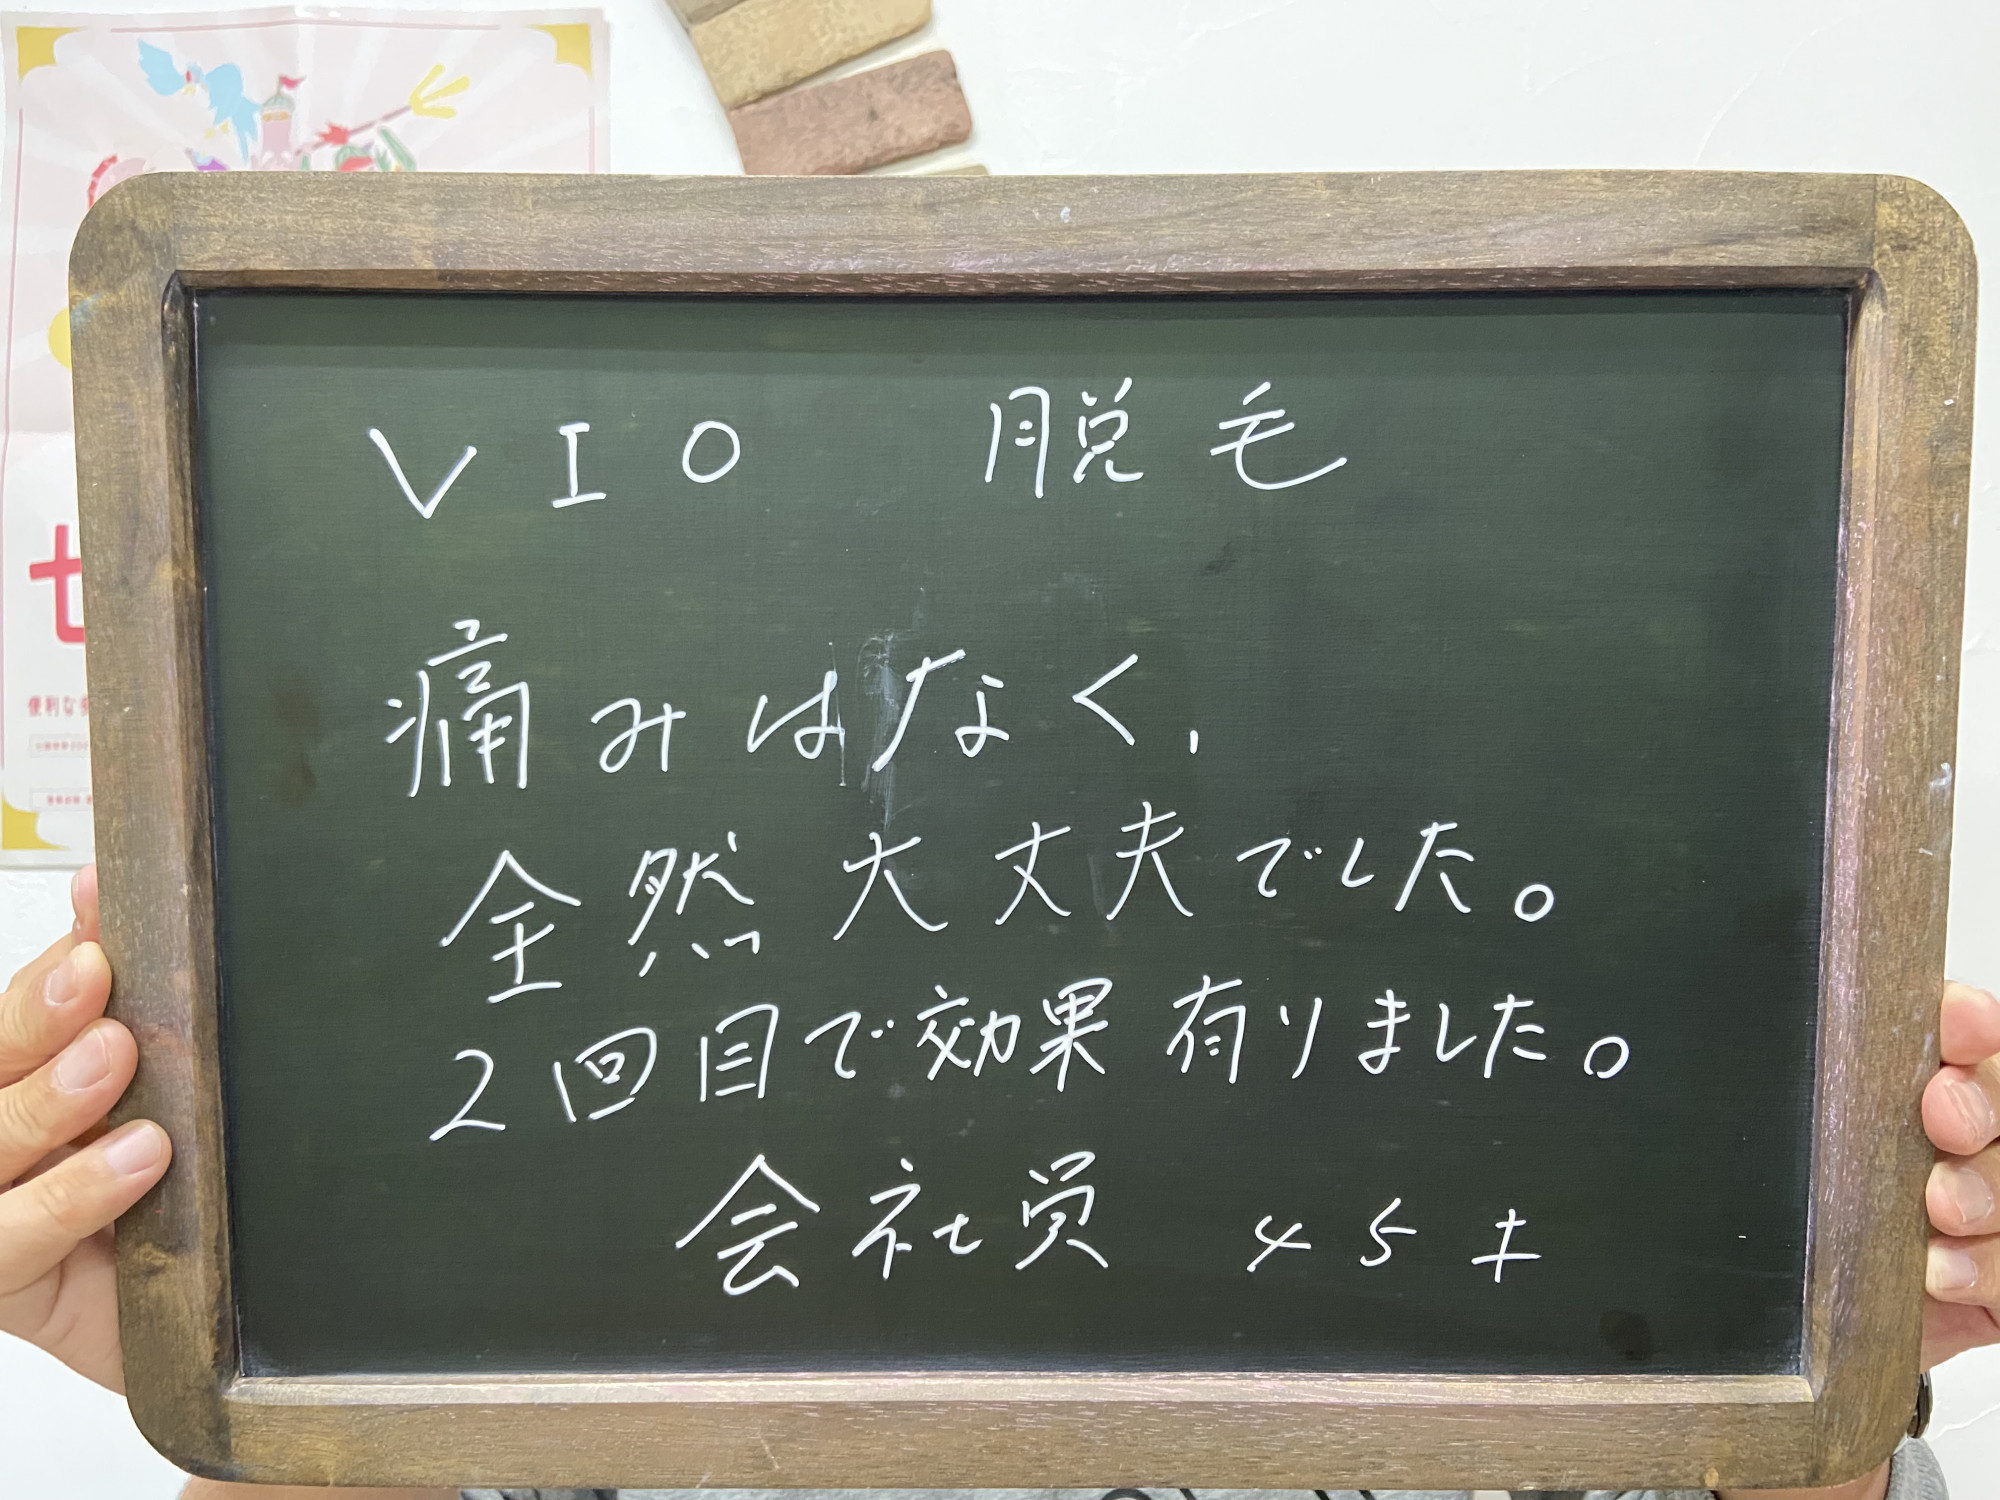 VIO 脱毛
痛みはなく、
全然大丈夫でした。
2回目で効果有りました。
会社員 45才
便利な